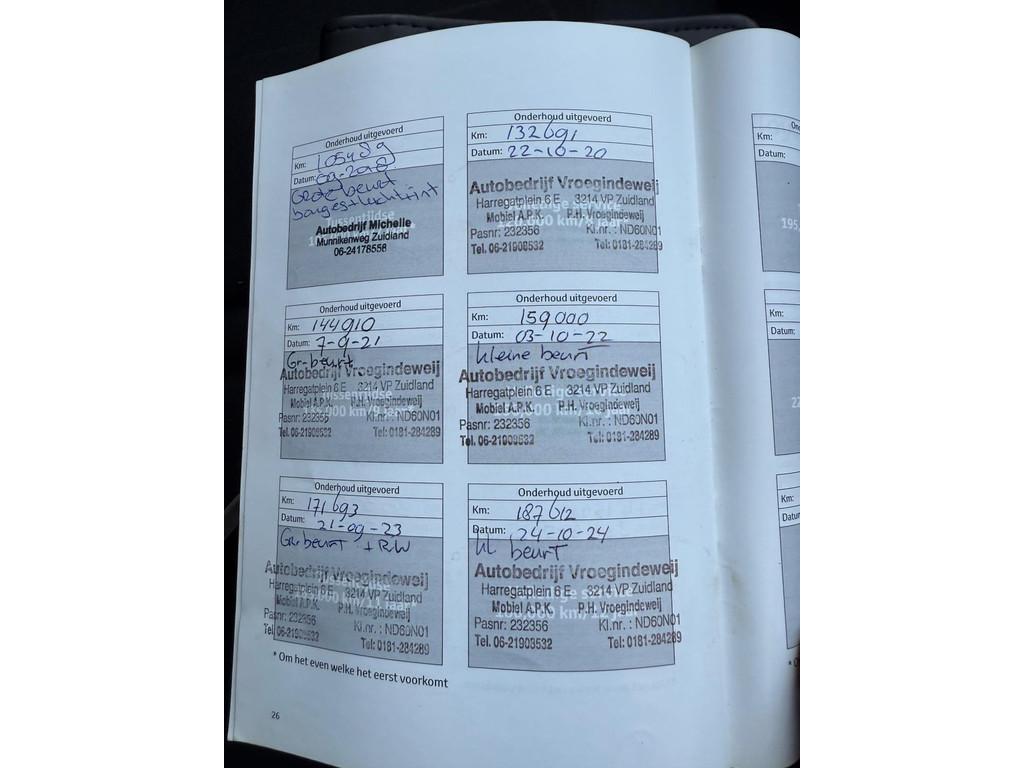 Onderhoud uitgevoerd
Km: 105489
Datum:
Grote beurt
Autobedrijf Michelle
Munnikenweg Zuidland
06-24178556
Onderhoud uitgevoerd
Km: 132691
Datum: 22-10-20
Autobedrijf Vroegindeweij
Harregatplein 6 E 3214 VP Zuidland
Mobiel A.P.K. P.H. Vroegindeweij
Pasnr: 232356 Kl.nr. : ND60N01
Tel. 06-21903532 Tel: 0181-284289
Onderhoud uitgevoerd
Km: 144910
Datum: 7-9-21
Gr-beurt
Autobedrijf Vroegindeweij
Harregatplein 6 E 3214 VP Zuidland
Mobiel A.P.K. P.H. Vroegindeweij
Pasnr: 232356 Kl.nr. : ND60N01
Tel. 06-21903532 Tel: 0181-284289
Onderhoud uitgevoerd
Km: 159000
Datum: 03-10-22
kleine beurt
Autobedrijf Vroegindeweij
Harregatplein 6 E 3214 VP Zuidland
Mobiel A.P.K. P.H. Vroegindeweij
Pasnr: 232356 Kl.nr. : ND60N01
Tel. 06-21903532 Tel: 0181-284289
Onderhoud uitgevoerd
Km: 171693
Datum: 21-09-23
Gr-beurt + RW
Autobedrijf Vroegindeweij
Harregatplein 6 E 3214 VP Zuidland
Mobiel A.P.K. P.H. Vroegindeweij
Pasnr: 232356 Kl.nr. : ND60N01
Tel. 06-21903532 Tel: 0181-284289
Onderhoud uitgevoerd
Km: 187612
Datum: 24-10-24
kl beurt
Autobedrijf Vroegindeweij
Harregatplein 6 E 3214 VP Zuidland
Mobiel A.P.K. P.H. Vroegindeweij
Pasnr: 232356 Kl.nr. : ND60N01
Tel. 06-21903532 Tel: 0181-284289
* Om het even welke het eerst voorkomt
26
Km:
Datum:
Km:
Datum:
Km: